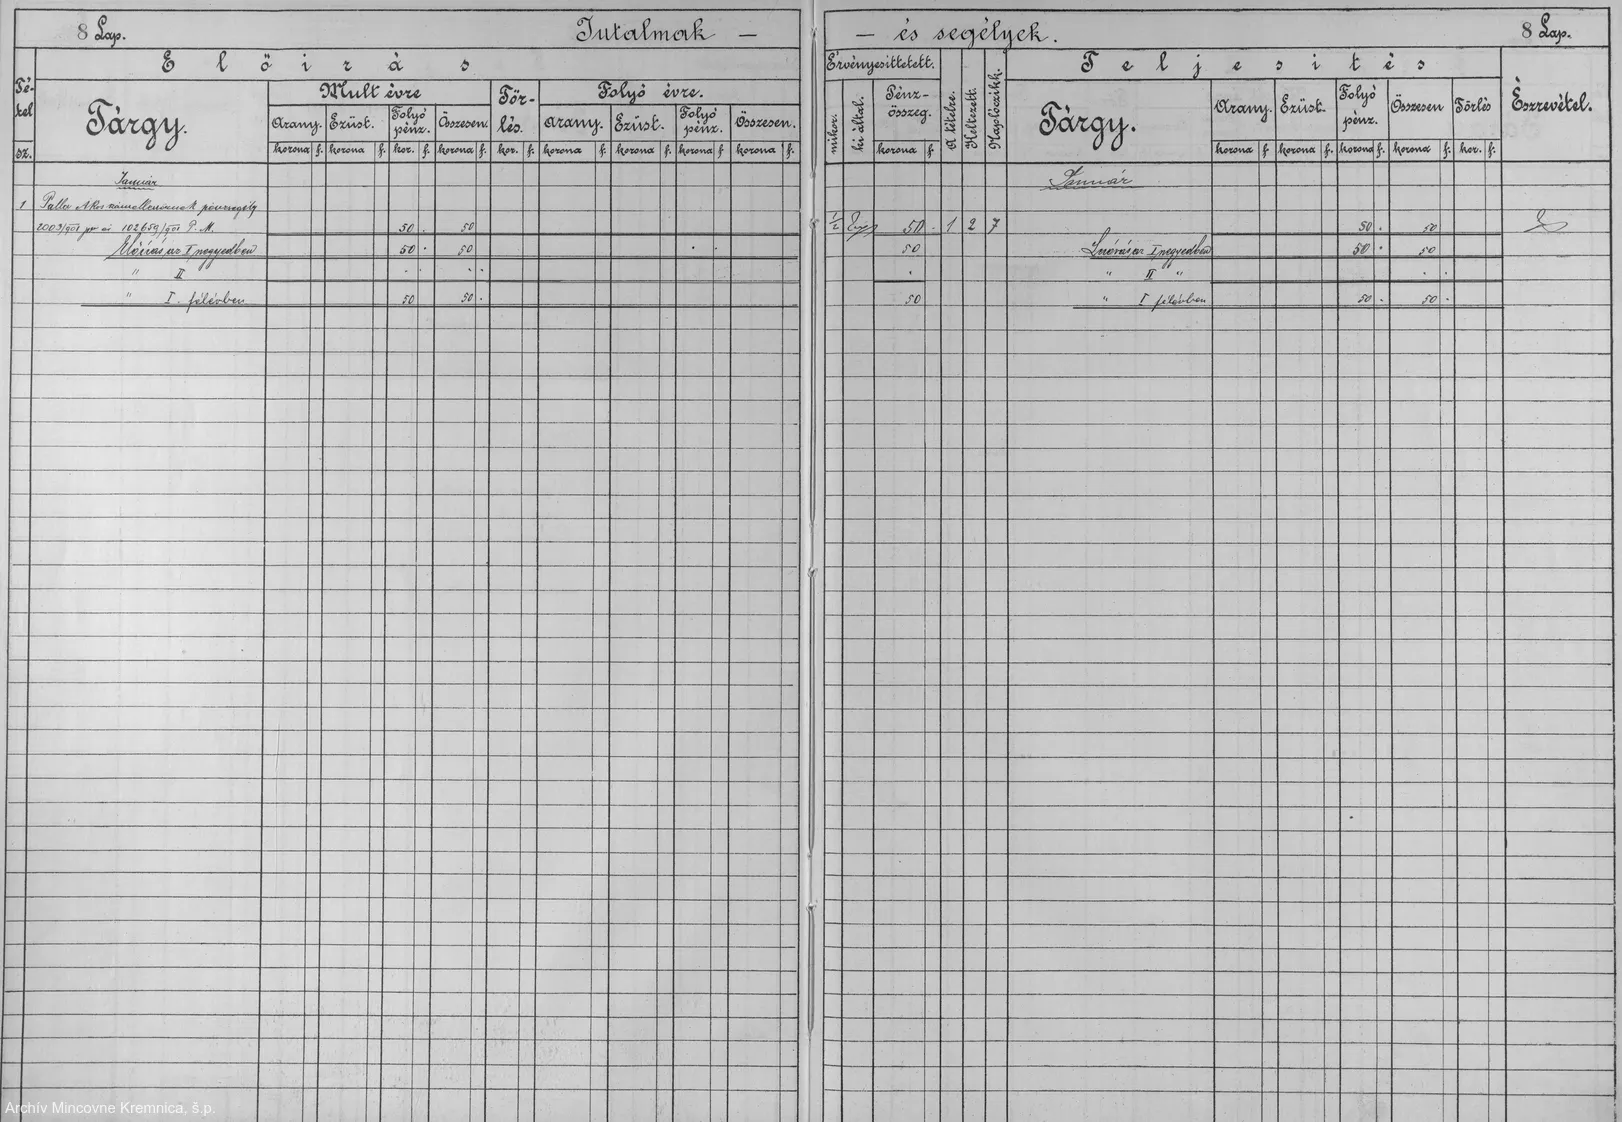 8 Lap.
Jutalmak —
— és segélyek.
8 Lap.
Előirás
Érvényesittetett.
Teljesités
Té-
tel
sz.
Tárgy.
Mult évre
Tör-
lés.
Folyó évre.
mikor.
ki által.
Pénz-
összeg.
A tételre.
Keltezett.
Naplóczikk.
Tárgy.
Arany. Ezüst. Folyó pénz. Összesen Törlés
Észrevétel.
Arany. Ezüst. Folyó pénz. Összesen.
Arany. Ezüst. Folyó pénz. Összesen.
korona f. korona f. kor. f. korona f. kor. f. korona f. korona f. korona f. korona f.
korona f. korona f korona f. korona f. korona f. kor. f.
Január
Január
1 Palla Ákos
2003/901 102659/901 P. M. 50 . 50
50 . 1 2 7 50 . 50
Előirás az I negyedben 50 . 50
50 az I negyedben 50 . 50
" II
" II "
" I. félévben 50 50 .
50 " I félévben 50 . 50 .
Archív Mincovne Kremnica, š.p.